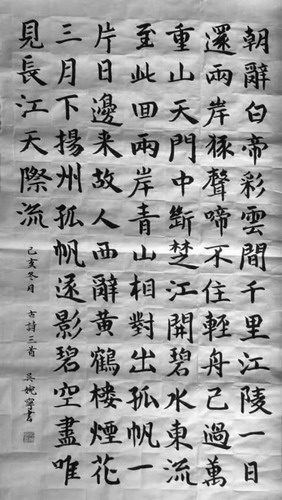 朝辭白帝彩雲間千里江陵一日
還兩岸猿聲啼不住輕舟已過萬
重山天門中斷楚江開碧水東流
至此回兩岸青山相對出孤帆一
片日邊来故人西辭黃鶴樓煙花
三月下揚州孤帆遠影碧空盡唯
見長江天際流
己亥冬月 古詩三首 吳婉寧書